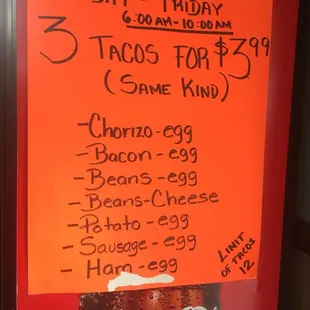 FRIDAY
6:00AM-10:00AM
3 TACOS FOR $3.99
(SAME KIND)
-Chorizo-egg
-Bacon-egg
-Beans-egg
-Beans-Cheese
-Potato-egg
-Sausage-egg
-Ham-egg
LIMIT
OF TACOS
12